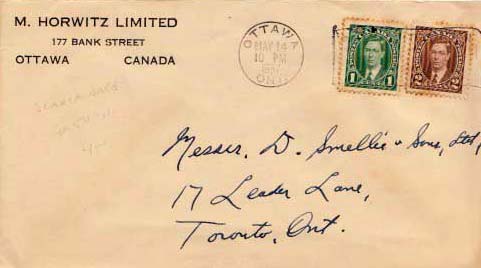 M. HORWITZ LIMITED
177 BANK STREET
OTTAWA CANADA
OTTAWA
MAY 14
10 PM
ONT.
1
2
Messrs. D. Smellie & Sons, Ltd,
17 Leader Lane,
Toronto, Ont.